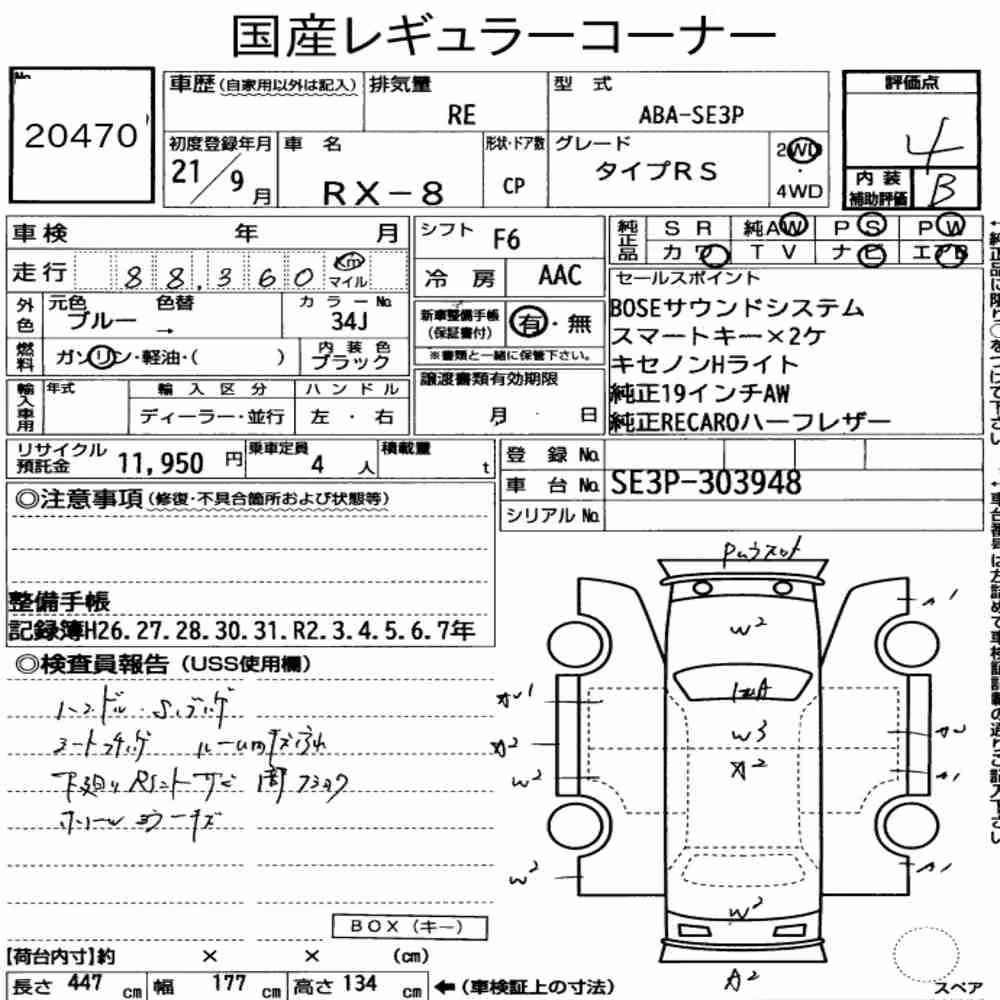 国産レギュラーコーナー
No.
20470
車歴(自家用以外は記入)
排気量
RE
型 式
ABA-SE3P
評価点
4
初度登録年月
21/9月
車 名
RX-8
形状・ドア数
CP
グレード
タイプRS
2WD
・
4WD
内装
補助評価
B
車検 年 月
シフト
F6
純正品
SR 純AW PS PW
カワ TV ナビ エアB
走行 88,360 Km
マイル
冷房
AAC
セールスポイント
BOSEサウンドシステム
スマートキー×2ケ
キセノンHライト
純正19インチAW
純正RECAROハーフレザー
外色
元色
ブルー
色替
→
カラーNo.
34J
新車整備手帳
(保証書付)
有・無
※書類と一緒に保管下さい。
燃料
ガソリン・軽油・( )
内装色
ブラック
譲渡書類有効期限
月 日
輸入車用
年式
輸入区分
ディーラー・並行
ハンドル
左・右
リサイクル
預託金
11,950 円
乗車定員
4 人
積載量
t
登録 No.
車台 No. SE3P-303948
シリアル No.
◎注意事項(修復・不具合箇所および状態等)
整備手帳
記録簿H26.27.28.30.31.R2.3.4.5.6.7年
◎検査員報告(USS使用欄)
ハンドル・Sスブカゲ
下廻りRSントサビ
W2
W3
W2
W2
W2
A2
BOX(キー)
【荷台内寸】約 × × (cm)
長さ 447 cm 幅 177 cm 高さ 134 cm ←(車検証上の寸法)
スペア